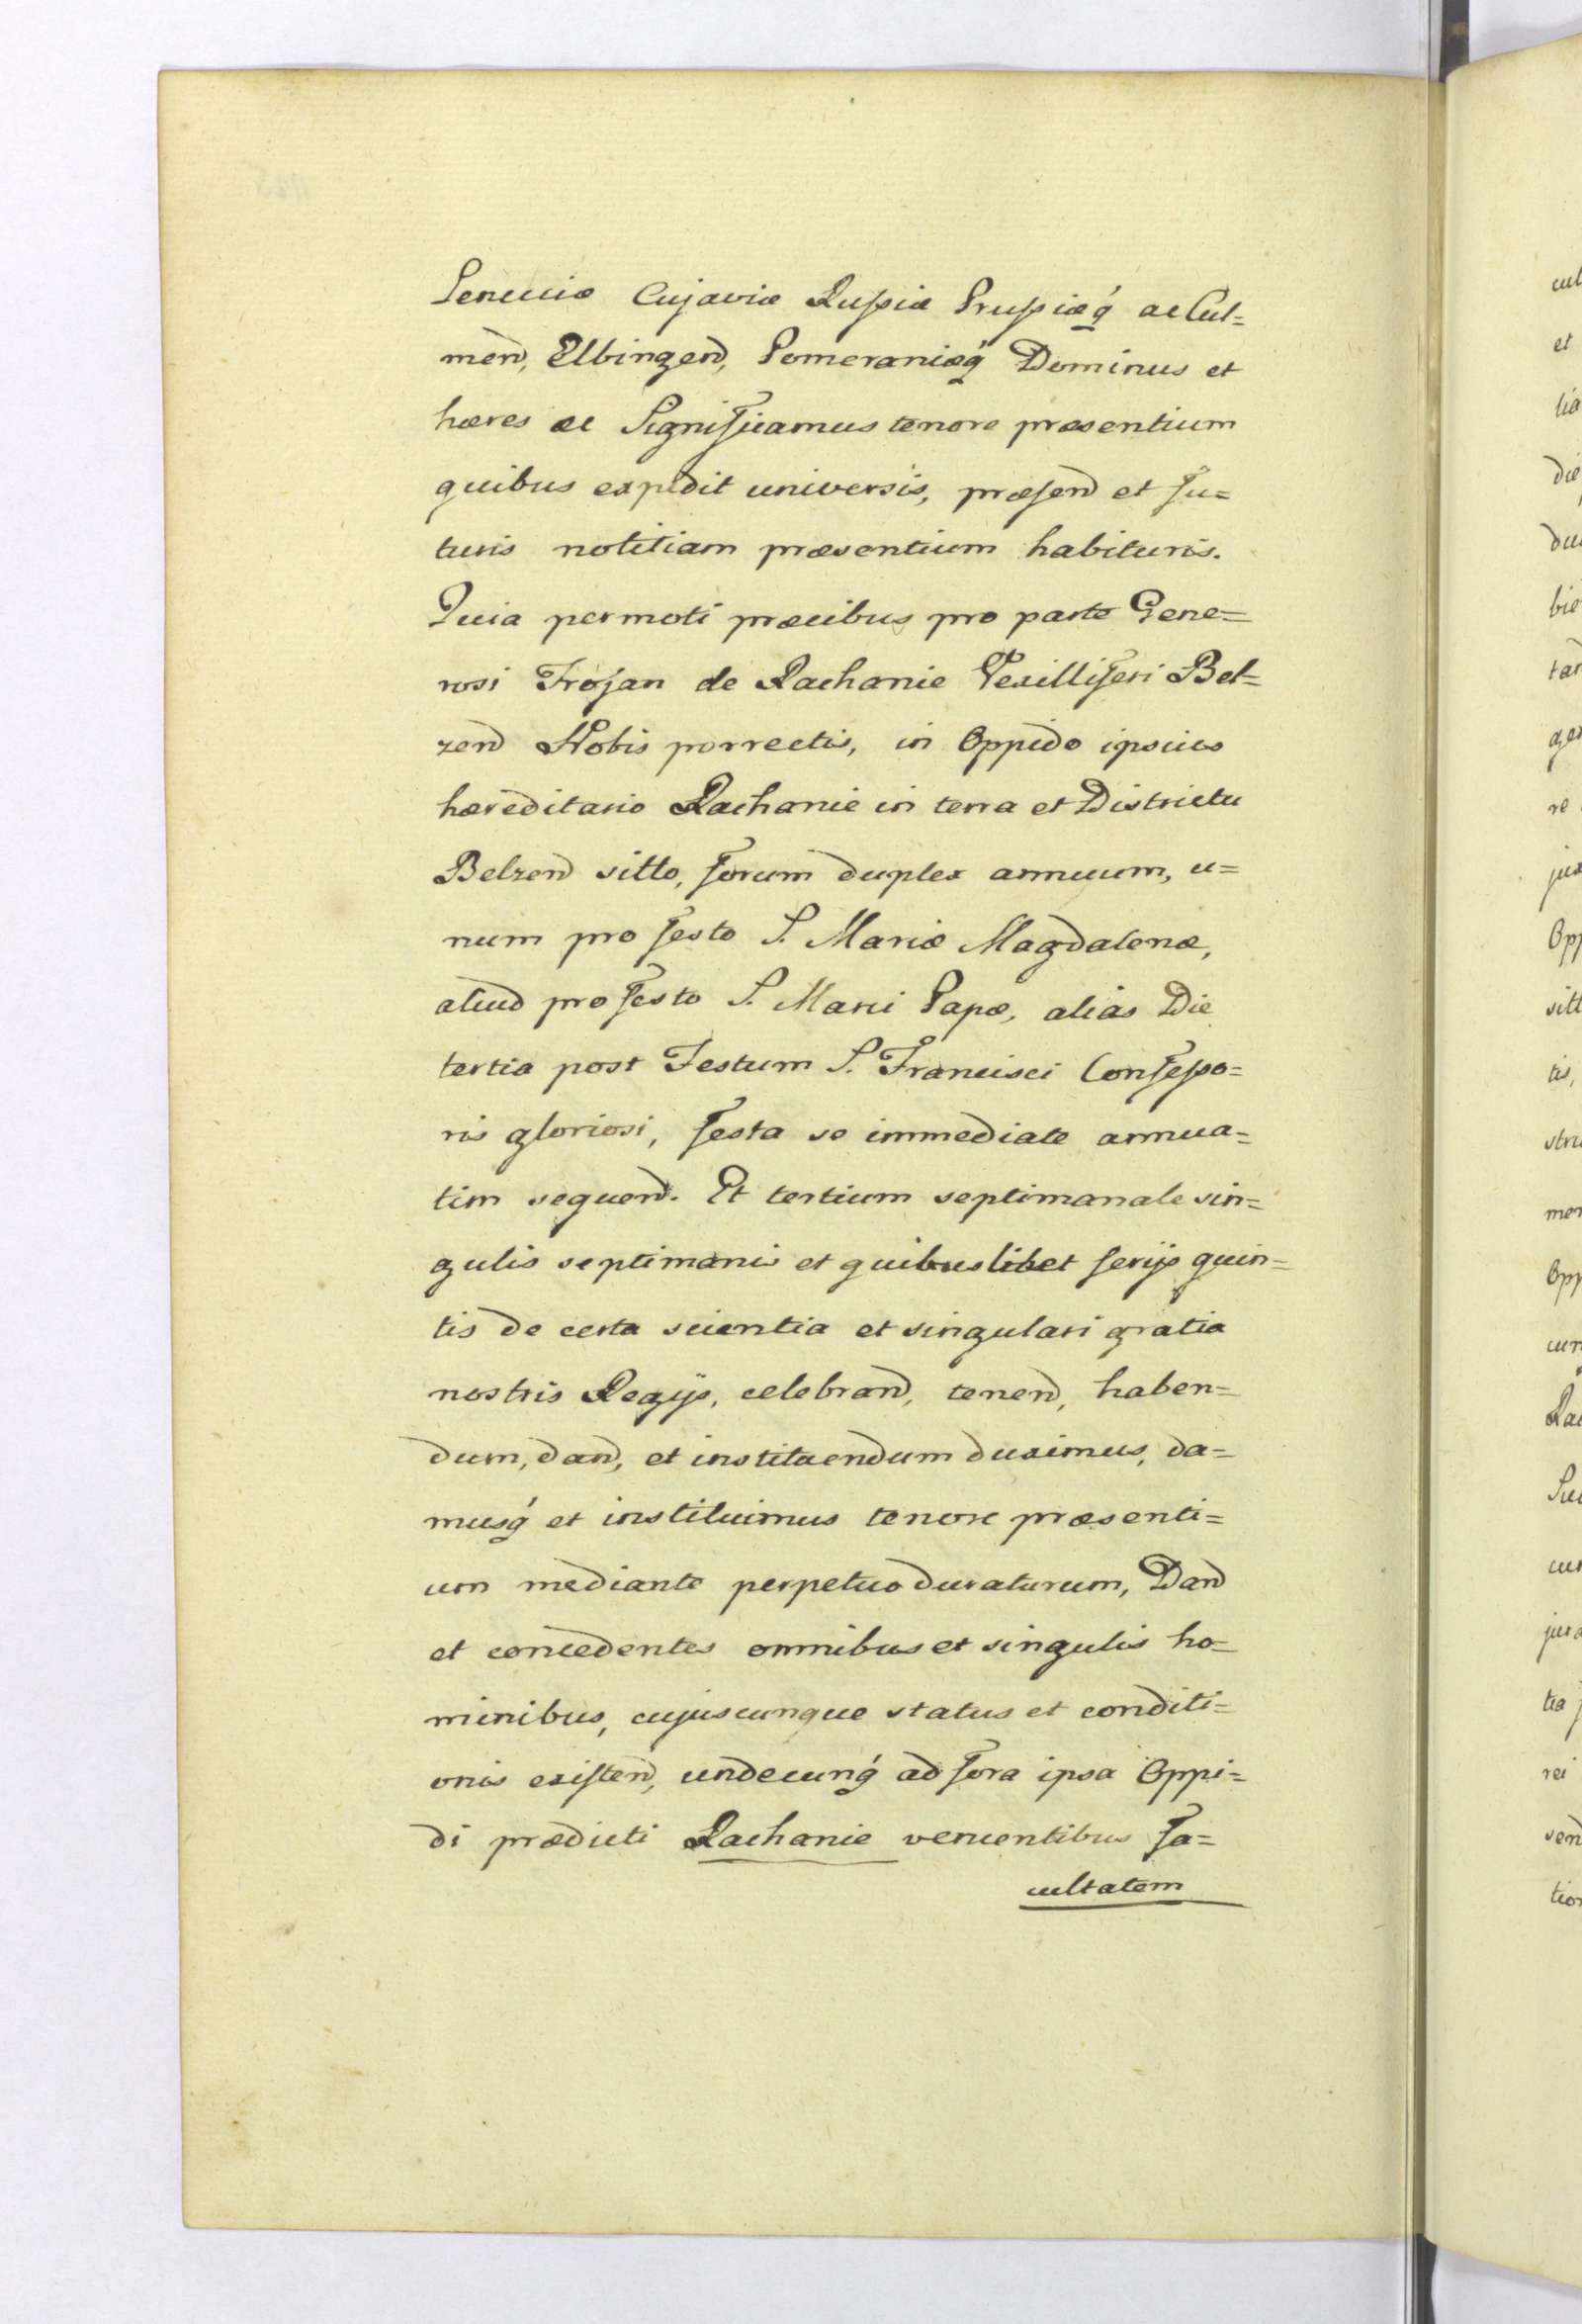 Lenciciæ Cujaviæ Russiæ Prussiæq́ ac Cul=
men̄, Elbingen̄, Pomeraniæq́ Dominus et
hæres &c Significamus tenore præsentium
quibus expedit universis, præsen̄ et fu=
turis notitiam præsentium habituris.
Quia permoti præcibus pro parte Gene=
rosi Trojan de Rachanie Vexilliferi Bel=
zen̄ Nobis porrectis, in Oppido ipsius
hæreditario Rachanie in terra et Districtu
Belzen̄ sitto, forum duplex annuum, u=
num pro festo S. Mariæ Magdalenæ,
aliud pro festo S. Marci Papæ, alias Die
tertia post Festum S. Francisci Confesso=
ris gloriosi, festa se immediate annua=
tim sequen̄. Et tertium septimanale sin=
gulis septimanis et quibuslibet ferijs quin=
tis de certa scientia et singulari gratia
nostris Regijs, celebran̄, tenen̄, haben=
dum, dan̄, et instituendum duximus, da=
musq́ et instituimus tenore præsenti=
um mediante perpetuo duraturum, Dan̄
et concedentes omnibus et singulis ho=
minibus, cujuscunque status et conditi=
onis existen̄, undecunq́ ad fora ipsa Oppi=
di prædicti Rachanie venientibus fa=
cultatem